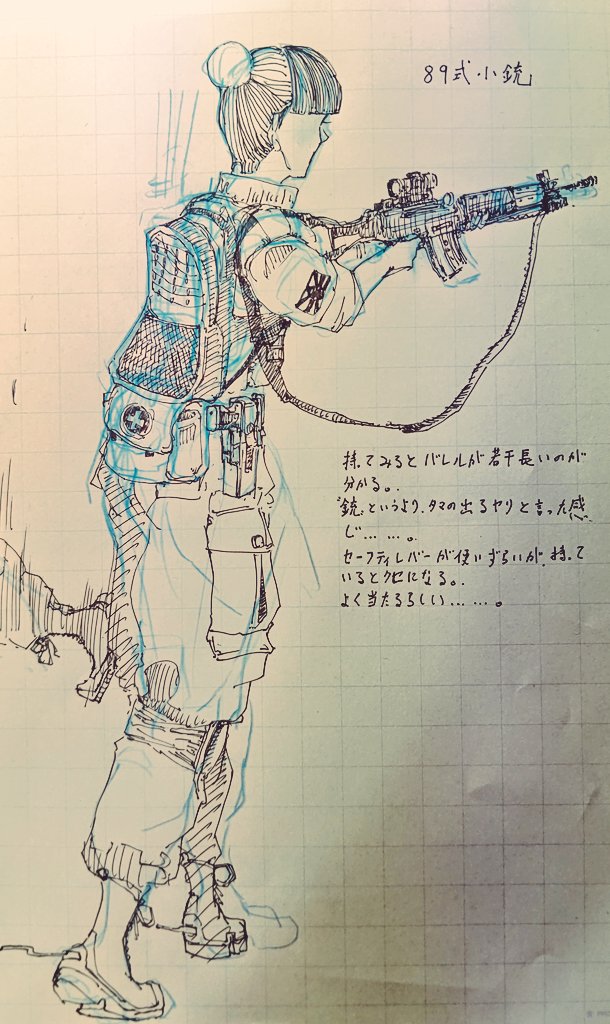 89式小銃
持ってみるとバレルが若干長いのが
分かる。
"銃"というより、タマの出るヤリと言った感
じ……。
セーフティレバーが使いずらいが、持って
いるとクセになる。
よく当たるらしい……。